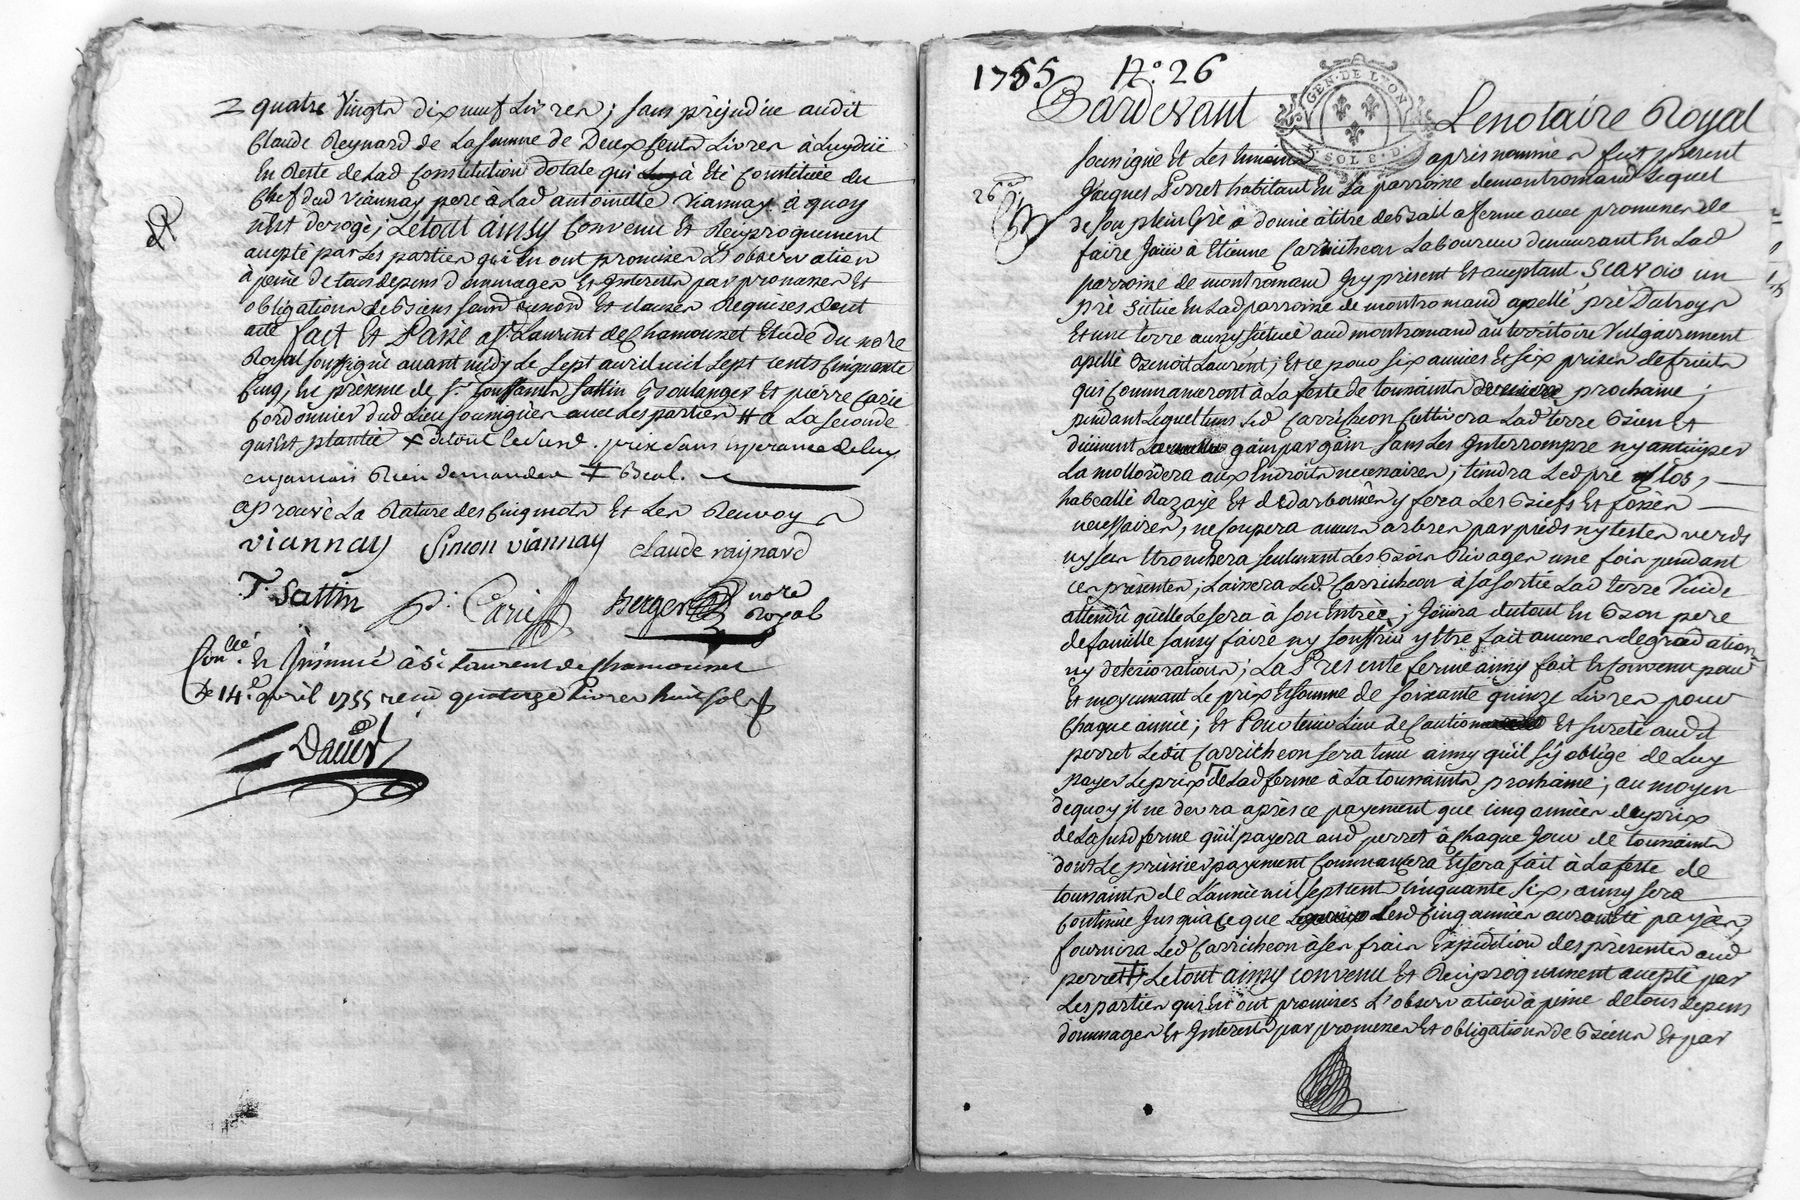 quatre Vingts dix neuf Livres; sans préjudice audit
Claude Reynard de La somme de Deux Cents Livres à Luy düe
En Reste de Lad Constitution dotale qui à Eté Constituée du
Chef dud Viannay pere à Lad antoinette Viannay à quoy
n'Est derogé; Le tout ainsy Convenu Et Reciproquement
accepté par Les parties qui En ont promises L'observation
à peine de tous depens dommages Et Interests par promesses Et
obligations de Biens Et clauses Requises dont
acte fait Et Passé a St Laurent de Chamousset Etude du no.re
Royal soussigné avant midy Le sept avril mil sept cents Cinquante
Cinq, En présence de Sr. toussaints sattin Boulanger Et pierre Carie
Cordonnier dud Lieu soussignés avec Les parties # a La seconde
qui Est plantée + prix sans esperance de luy
en jamais Rien demander ‡
aprouvé La Rature des Cinq mots Et Les Renvoy
viannay Simon viannay claude raynard
T. Sattin p. Carie Berger no.re
Royal
Con.llé Et Insinué à St Laurent de Chamousset
Le 14.e avril 1755 reçu quatorze Livres huit sols
1755 N.o 26
GEN. DE LYON
2 SOLS 8. D.
Pardevant Le notaire Royal
soussigné Et Les témoins après nommés fut présent
26
Jacques Perret habitant En La parroisse de montromand Lequel
de son plein Gré à donné à titre de Bail a ferme avec promesses de
faire Joüir à Etienne Carricheon Laboureur demeurant En Lad
parroisse de montromand Icy présent Et acceptant, SCAVOIR un
pré Sittué En Lad parroisse de montromand apellé pré
Et une terre aussy sittuée aud montromand au territoire Vulgairement
apellé Benoit Laurent; Et ce pour six années Et six prises de fruits
qui Commanceront à La feste de toussaints prochaine;
pendant Lequel tems Led Carricheon Cultivera Lad terre Bien Et
düement gain par gain sans Les Interrompre ny anticiper
La mollossera aux Endroits necessaires; tiendra Led pré Clos,
Razayé Et y fera Les Biefs Et fosses
necessaires, ne Coupera aucuns arbres par pieds ny testes verds
ny sec tronchera seulement Les Bois Rivages une fois pendant
ces présentes; Laissera Led. Carricheon à sa sortie Lad terre Vuide
attendû qu'elle Le sera à son Entrée; Joüira du tout En Bon pere
de famille sans y faire ny souffrir y Etre fait aucunes degradations
ny deteriorations; La Présente ferme ainsy fait Et Convenu pour
Et moyennant Le prix Et somme de soixante quinze Livres pour
Chaque année; Et Pour tenir Lieu de Caution Et sureté audit
perret Ledit Carricheon sera tenu ainsy qu'il s'y oblige de Luy
payer Le prix de Lad ferme à La toussaints prochaine; au moyen
de quoy il ne devra après ce payement que cinq années du prix
de La susd ferme qu'il payera aud perret à Chaque Jour de toussaints
dont Le premier payement Commancera Et sera fait à La feste de
toussaints de L'année mil sept cent Cinquante six, ainsy sera
Continüé Jusqu'à ce que Lesd Cinq années auront été payées,
fournira Led Carricheon à ses frais Expedition des présentes aud
perret ‡, Le tout ainsy convenu Et Reciproquement accepté par
Les parties qui En ont promises L'observation à peine de tous depens
dommages Et Interests par promesses Et obligations de Biens Et par